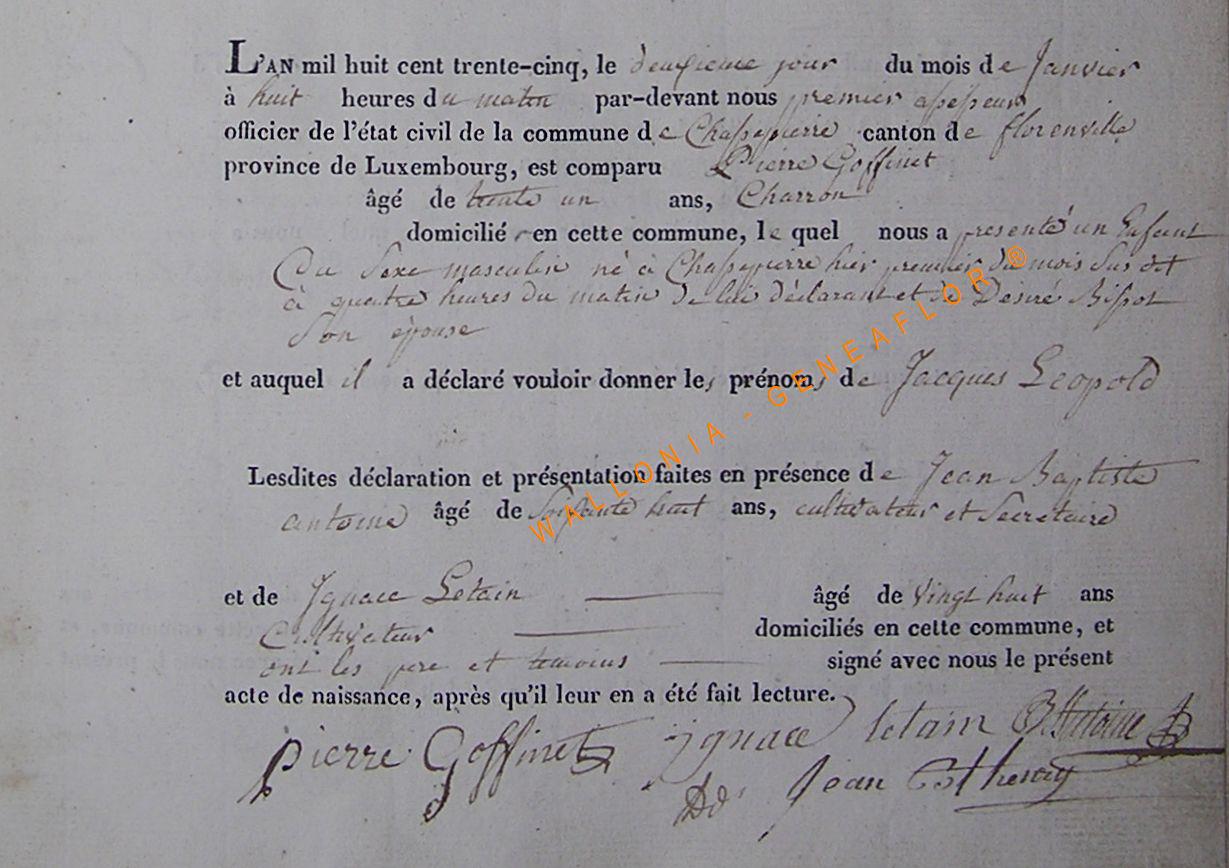 L'AN mil huit cent trente-cinq, le deuxieme jour du mois de Janvier
à huit heures du matin par-devant nous premier assesseur
officier de l'état civil de la commune de Chassepierre canton de florenville
province de Luxembourg, est comparu Pierre Goffinet
âgé de trente un ans, Charron
domicilié en cette commune, le quel nous a presenté un Enfant
Du Sexe masculin né à Chassepierre hier premier du mois Sus dit
à quatre heures du matin de lui déclarant et de Desiré
Son épouse
et auquel il a déclaré vouloir donner les prénoms de Jacques Leopold
Lesdites déclaration et présentation faites en présence de Jean Baptiste
antoine âgé de Soixante huit ans, cultivateur et Secretaire
et de Ignace Letain âgé de Vingt huit ans
Cultivateur domiciliés en cette commune, et
ont les pere et temoins signé avec nous le présent
acte de naissance, après qu'il leur en a été fait lecture.
pierre Goffinet ignace letain Antoine
Jean
WALLONIA - GENEAFLOR ®